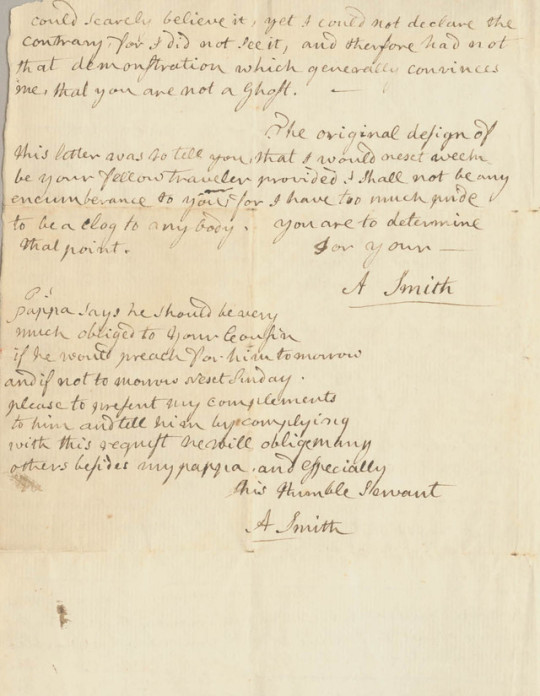 could scarcely believe it, yet I could not declare the
contrary, for I did not see it, and therefore had not
that demonstration which generally convinces
me, that you are not a Ghost. —
The original design of
this letter was to tell you, that I would next week
be your fellow traveler provided I shall not be any
encumberance to you, for I have too much pride
to be a clog to any body. you are to determine
that point. for your —
A Smith
P.S
pappa says he should be very
much obliged to Your Cousin
if he would preach for him tomorrow
and if not to morrow next Sunday.
please to present my complements
to him and tell him by complying
with this request he will oblige many
others besides my pappa, and especially
his Humble Servant
A Smith